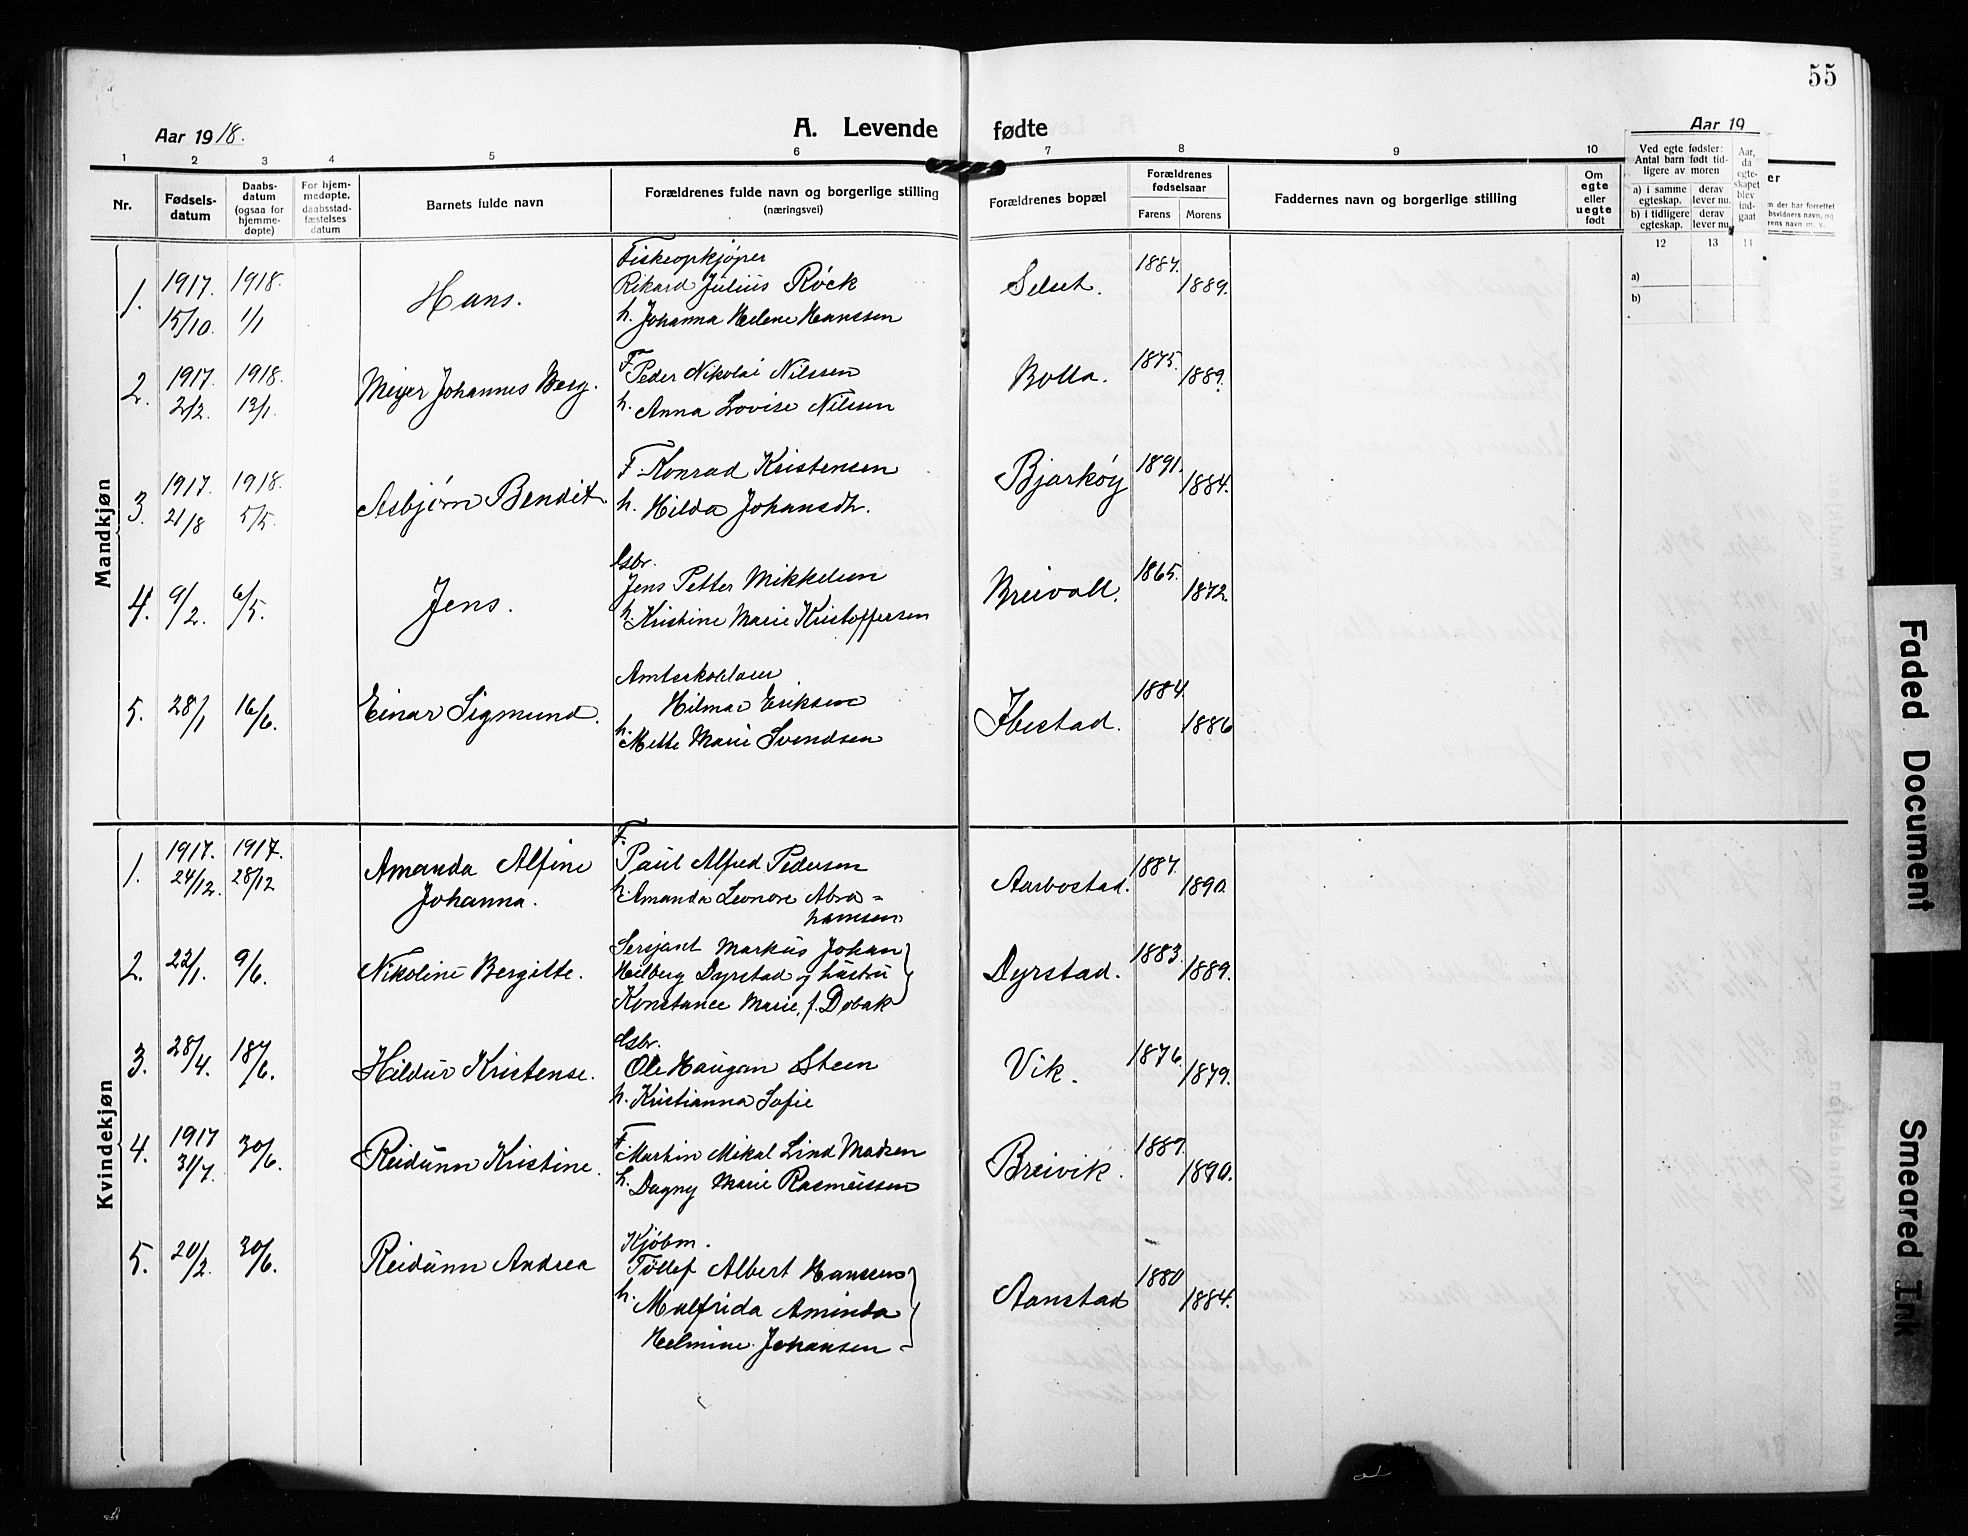 55
Aar 1918.
A. Levende fødte
Aar 19
1 2 3 4 5 6 7 8 9 10
Nr.
Fødsels-
datum
Daabs-
datum
(ogsaa for
hjemme-
døpte)
For hjem-
medøpte,
daabsstad-
fæstelses
datum
Barnets fulde navn
Forældrenes fulde navn og borgerlige stilling
(næringsvei)
Forældrenes bopæl
Forældrenes
fødselsaar
Farens Morens
Faddernes navn og borgerlige stilling
Om
egte
eller
uegte
født
Ved egte fødsler:
Antal barn født tid-
ligere av moren
a) i samme
egteskap.
derav
lever nu.
b) i tidligere
egteskap.
derav
lever nu
Aar,
da
egte-
skapet
blev
ind-
gaat
12 13 11
a)
b)
Mandkjøn
1. 1917. 15/10. 1918. 1/1
Hans.
Fiskeopkjøper
Rikard Julius Röck
h. Johanna Helene Hanssen
Selset. 1887. 1889.
2. 1917. 2/2. 1918. 13/1.
Meyer Johannes Berg.
F. Peder Nikolai Nilssen
h. Anna Lovise Nilsen
Bolla. 1875. 1889.
3. 1917. 21/8 1918. 5/5.
Asbjørn Bendik
F. Konrad Kristensen
h. Hilda Johansdtr.
Bjarköy 1891. 1884.
4. 9/2. 6/5.
Jens.
Gsbr.
Jens Petter Mikkelsen
h. Kristine Marie Kristoffersen
Breivoll. 1865. 1872.
5. 28/1 16/6.
Einar Sigmund.
Hilmar Eriksen
h. Mette Marie Svendsen
Ibestad. 1884. 1886
Kvindekjøn
1. 1917. 24/12. 1917. 28/12
Amanda Alfine
Johanna.
F.
Paul Alfred Pedersen
h. Amanda Leonore Abra=
hamsen
Aarbostad. 1887. 1890.
2. 22/1. 9/6.
Nikoline Bergitte.
Sersjant Markus Johan
Heiberg Dyrstad og hustru
Konstance Marie, f. Dobak
Dyrstad. 1883. 1889.
3. 28/4. 18/6.
Hildur Kristense.
Gsbr.
Ole Haugan Steen
h. Kristianna Sofie
Vik. 1876. 1879.
4. 1917 31/7. 30/6.
Reidunn Kristine.
F. Martin Mikal Lind Madsen
h. Dagny Marie Rasmussen
Breivik. 1889. 1890.
5. 20/2. 30/6.
Reidunn Andrea
Kjöbm.
Tollef Albert Hansen
h. Malfrida Aminda
Helmine Johansen
Aanstad 1880 1884.
Faded Document
Smeared Ink